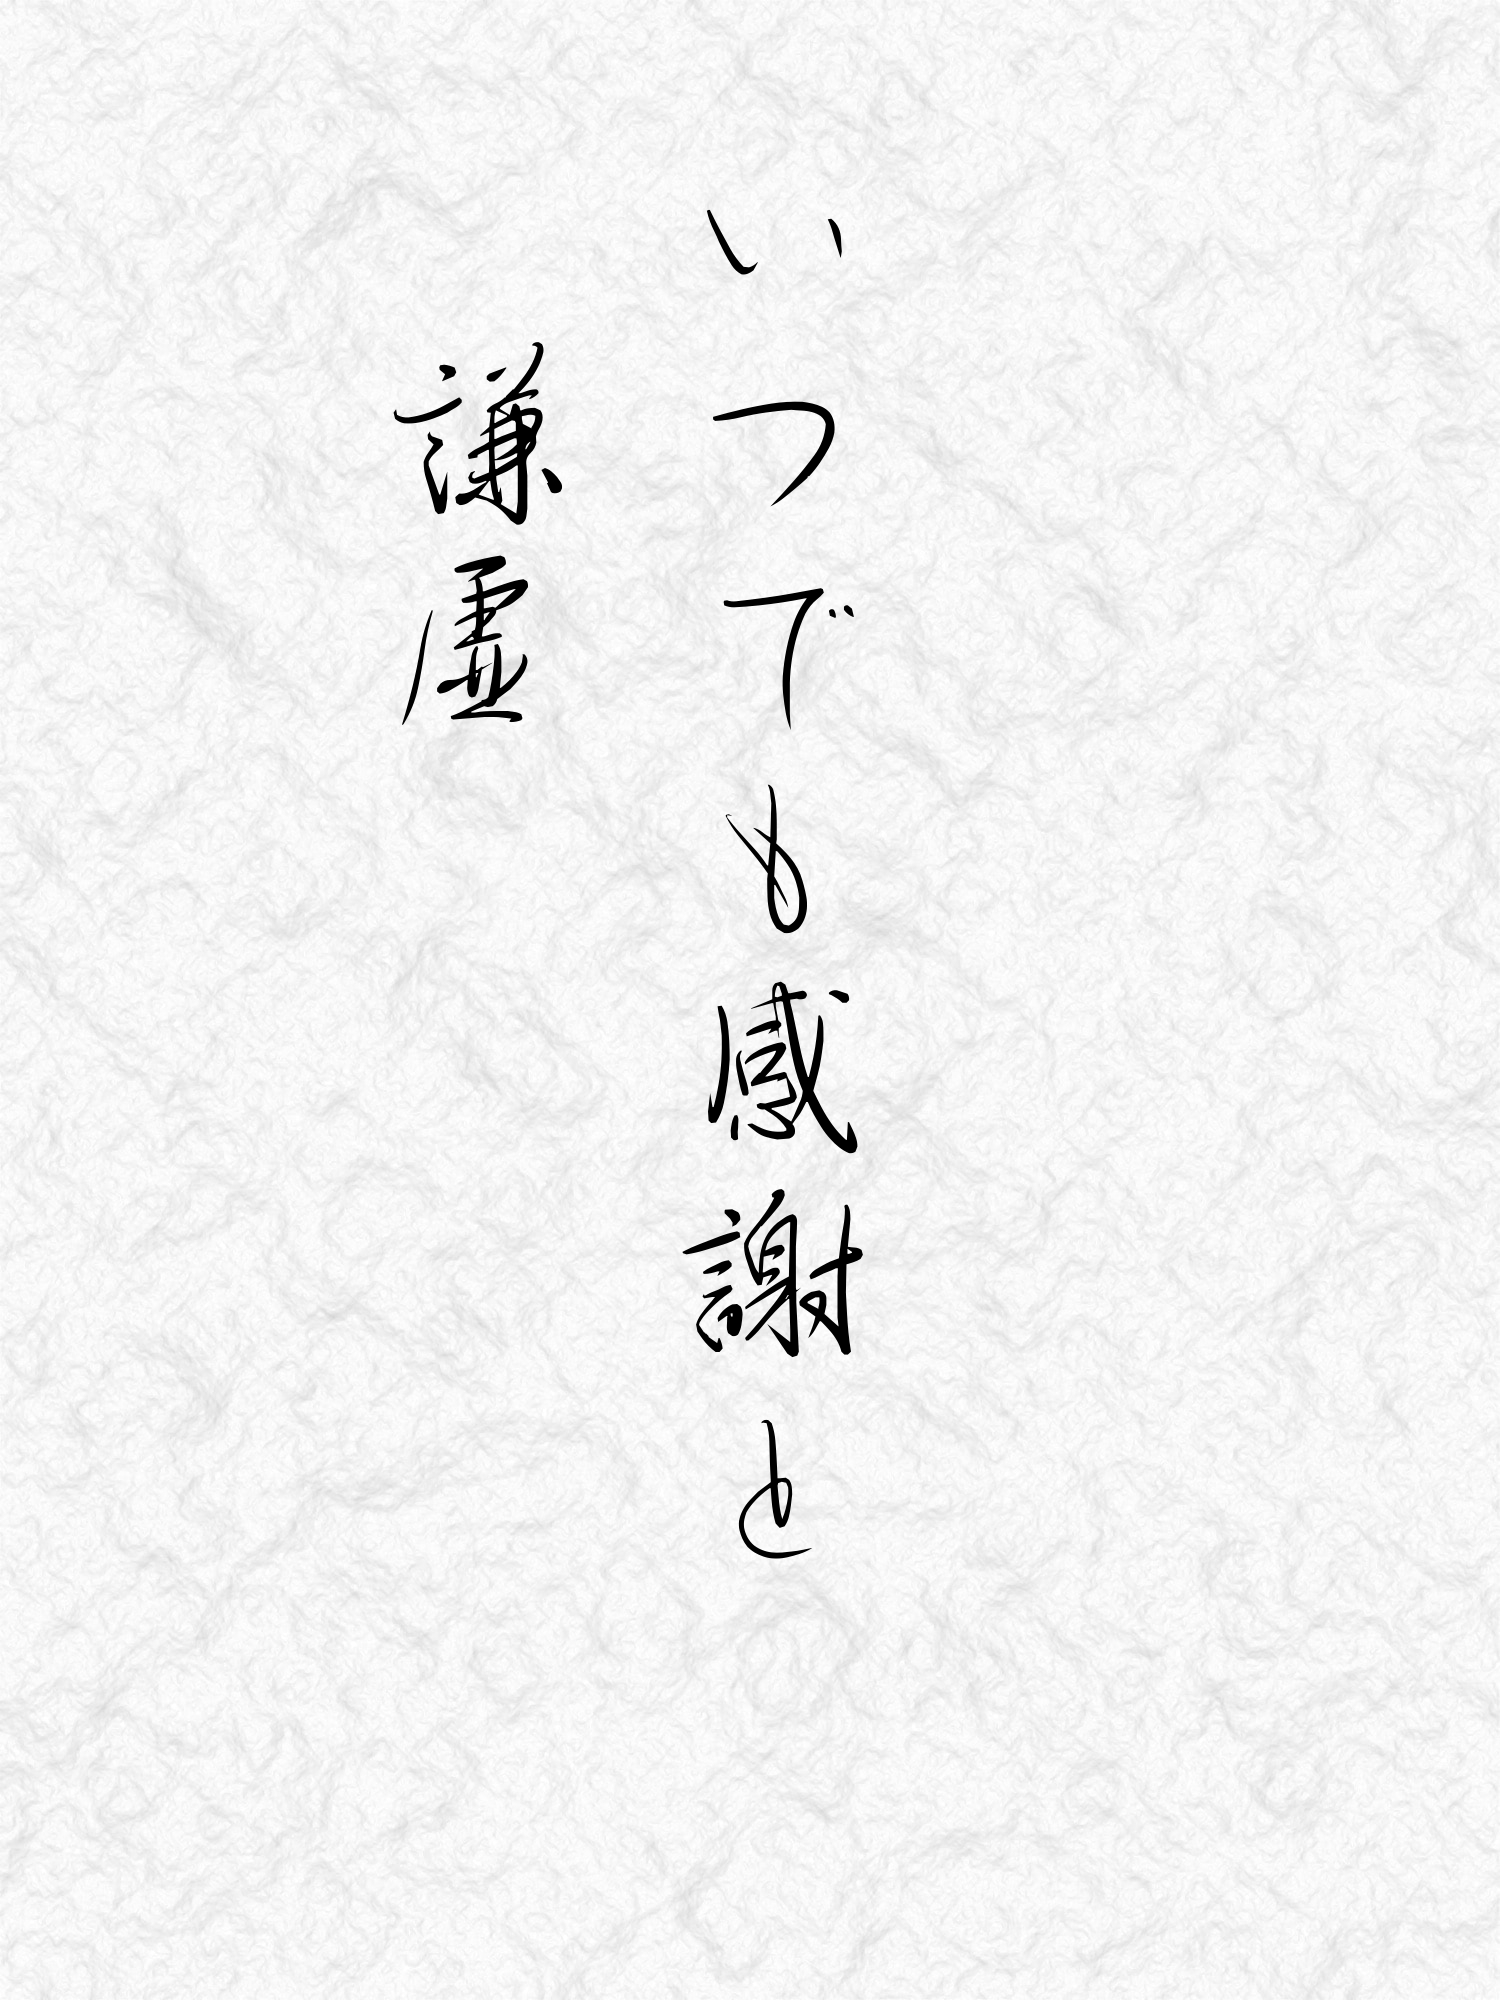 いつでも感謝と
謙虚